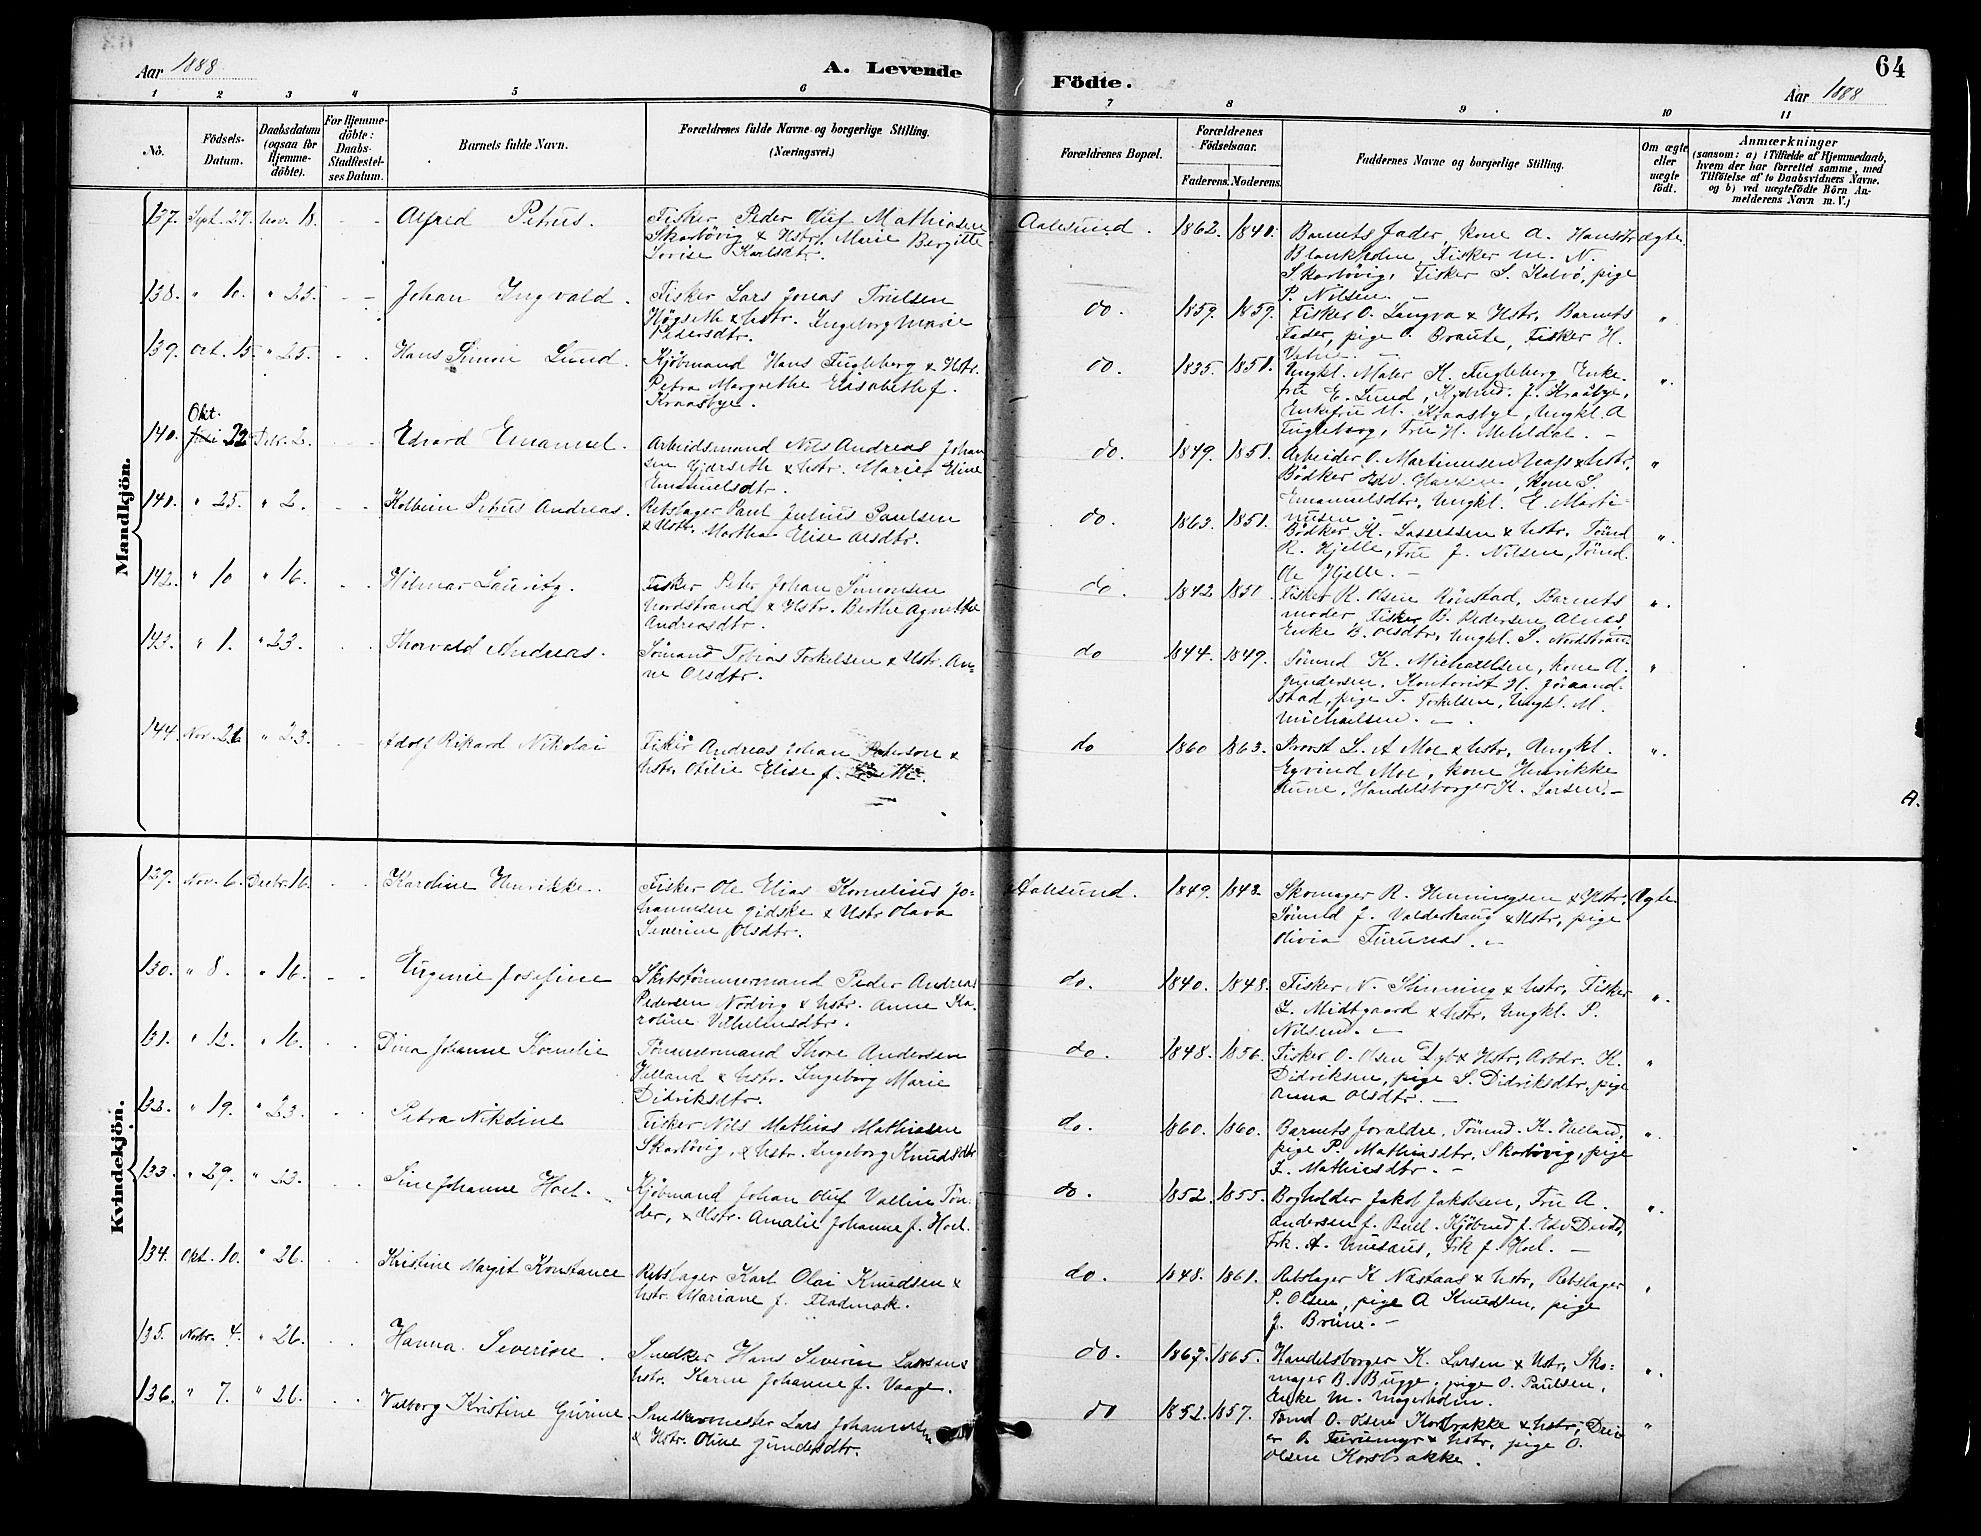 Aar 1888
A. Levende
Födte.
64
Aar 1888
1 2 3 4 5 6 7 8 9 10 11
No.
Födsels-
Datum.
Daabsdatum
(ogsaa for
Hjemme-
döbte).
For Hjemme-
döbte:
Daabs-
Stadfæstel-
ses Datum.
Barnets fulde Navn.
Forældrenes fulde Navne og borgerlige Stilling.
(Næringsvei.)
Forældrenes Bopæl.
Forældrenes
Födselsaar.
Faderens. Moderens.
Faddernes Navne og borgerlige Stilling.
Om ægte
eller
uægte
födt.
Anmærkninger
(sansom: a) i Tilfælde af Hjemmedaab,
hvem der har forrettet samme, med
Tilföielse af to Daabsvidners Navne,
og b) ved uægtefödte Börn An-
melderens Navn m. V.)
Mandkjön.
137. Sept. 27. Nov. 18. Alfred Petrus. Fisker Peder Oluf Mathiasen
Skarbövig & Hstr. Marie Bergitte
Lovise Karlsdtr.
Aalesund. 1862. 1840. Barnets Fader, kone A. Hansdtr ægte.
Blankholm, Fisker M. N.
Skarbövig, Fisker S. Kalvö, pige
P. Nilsen. —
138. " 10. " 25. Johan Ingvald. Fisker Lars Jonas Trulsen
Högseth & Hstr. Ingeborg Marie
Pedersdtr.
do. 1859. 1859. Fisker O. Longva & Hstr, Barnets "
Fader, pige O. Braute, Fisker H.
Vatne. —
139. Oct. 15. " 25. Hans Simon Lund. Kjöbmand Hans Fugleberg & Hstr.
Petra Margrethe Elisabeth f.
Kraasbye.
do. 1835. 1851. Ungkl. Maler H. Fugleberg, Enke- "
fru E. Lund, Kjöbmd. J. Kraasbye,
Enkefru M. Kraasbye, Ungkl. A
Fugleberg, Fru H. Mehldal. —
140. Okt. 22 Debr. 2. Edvard Emanuel. Arbeidsmand Nils Andreas Johan
sen Gjerseth & Hstr. Marie Eline
Emanuelsdtr.
do. 1849. 1851. Arbeider O. Martinusen & Hstr, "
Bödker Edv. Hansen, kone S.
Emanuelsdtr, Ungkl. E. Marti-
nusen —
141. " 25. " 2. Kolbein Petrus Andreas. Rebslager Paul Julius Paulsen
& Hstr. Martha Elise Olsdtr.
do. 1863. 1851. Bödker K. Lassessen & Hstr, Tömd "
R. Hjelle, Fru J. Nilsen, Tömd.
Ole Hjelle. —
142. " 10 " 16. Hilmar Lauritz. Fisker Peter Johan Simonsen
Nordstrand & Hstr. Berthe Agnethe
Andreasdtr.
do. 1842 1851. Fisker R. Olsen Rönstad, Barnets "
moder, Fisker B. Pedersen Alnæs,
Enke E. Olsdtr, Ungkl. S. Nordstrand
143. " 1. " 23. Thorvald Andreas. Sömand Tobias Torkelsen & Hstr. An-
ne Olsdtr.
do 1844. 1849. Sömnd K. Michaelsen, kone A. "
Gundersen, Kontorist H. Jöraand-
stad, pige T. Torkelsen, Ungkl. M.
Michaelsen. —
144. Nov. 21 " 23. Adolf Rikard Nikolai Fisker Andreas Johan Peterson &
Hstr. Otilie Elise f.
do 1860 1863. Provst L. A Moe & Hstr, Ungkl. "
Eyvind Moe, kone Henrikke
Aune, Handelsborger K. Larsen. —
A.
Kvindekjön.
129. Nov. 6. Decbr. 16. Karoline Henrikke. Fisker Ole Elias Kornelius Jo-
hannesen Gidske & Hstr Olava
Severine Olsdtr.
Aalesund. 1849. 1842 Skomager R. Henningsen & Hstr, Ægte
Sömd J. Valderhaug & Hstr, pige
Olivia Furunæs. —
130. " 8. " 16. Eugenie Josefine Skibstömmermand Peder Andreas
Pedersen Nödvig & Hstr. Anne Ka-
roline Vilhelmsdtr.
do. 1840. 1848. Fisker N. Slinning & Hstr, Fisker "
L. Midtgaard & Hstr, Ungkl. P.
Nilsen. —
131. " 12. " 16. Dina Johanne Kornelie Tömmermand Thore Andersen
Helland & Hstr. Ingeborg Marie
Didriksdtr.
do. 1848. 1856. Fisker O. Olsen Dyb & Hstr, Arbdr. K. "
Didriksen, pige S. Didriksdtr, pige
Anna Olsdtr. —
132. " 19. " 23. Petra Nikoline Fisker Nils Mathias Mathiasen
Skarbövig, & Hstr. Ingeborg Knudsdtr
do. 1860. 1860. Barnets foraldre, Tömd. K. Helland, "
pige P. Mathiasdtr. Skarbövig, pige
L. Mathiesdtr. —
133. " 29. " 23. Sine Johanne Hoel. Kjöbmand Johan Oluf Vallin Tön-
der, & Hstr. Amalie Johanne f. Hoel.
do. 1852. 1855. Bogholder Jakob Jakobsen, Fru A. "
Andersen f. Buel. Kjöbmd J.
Frk. A. Frk J. Hoel. —
134. Okt. 10. " 26. Kristine Margit Konstance Rebslager Karl Olai Knudsen &
Hstr. Mariane f. Flademark.
do. 1848. 1861. Rebslager K Næstaas & Hstr, Rebslager "
P. Olsen, pige A Knudsen, pige
J. Brune. —
135. Novbr. 4. " 26. Hanna Severine. Snedker Hans Severin Larsen &
Hstr. Karen Johanne f. Vaage.
do. 1867. 1865. Handelsborger K. Larsen & Hstr, Sko- "
mager B. Bugge, pige O. Paulsen,
Enke M. Magerholm.
136. " 7. " 26. Valborg Kristine Gurine Snedkermester Lars Johannessen
& Hstr. Oline Gundersdtr.
do 1852. 1857. Tömd O. Olsen Korsbrakke & Hstr, "
O. Furumyr & Hstr, pige O.
Olsen Korsbrakke.